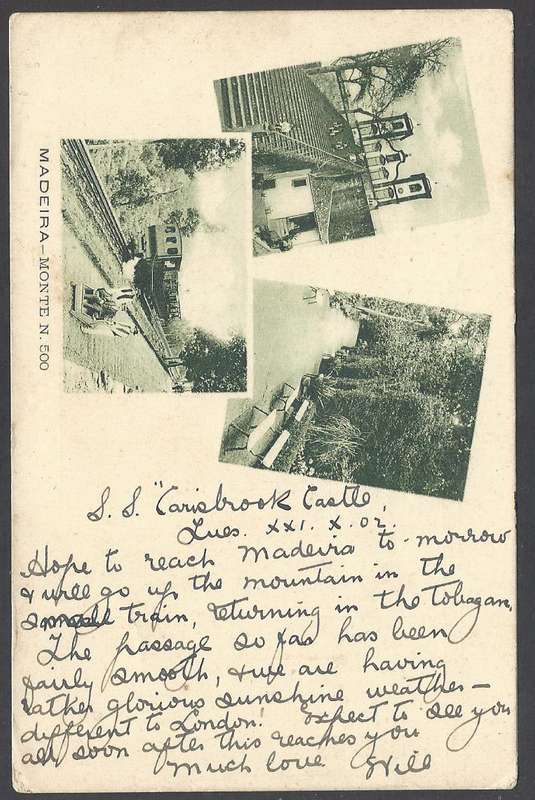 MADEIRA—MONTE N. 500
S. S. "Carisbrook Castle,
Tues. XXI. X. 02.
Hope to reach Madeira to-morrow
& will go up the mountain in the
small train, returning in the tobogan.
The passage so far has been
fairly smooth, & we are having
rather glorious sunshine weather—
different to London! Expect to see you
all soon after this reaches you
Much love Will